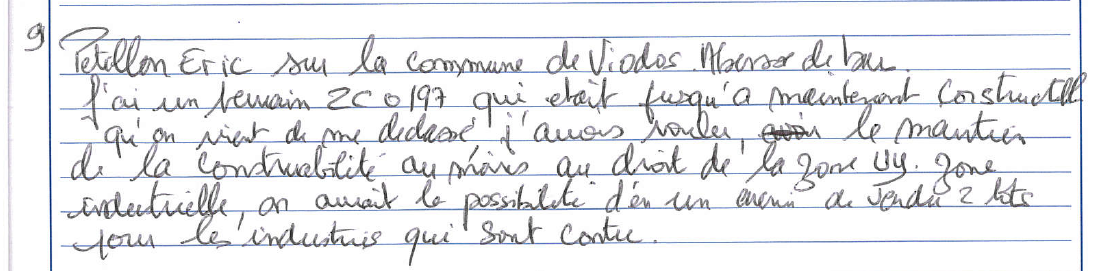 9
Petillon Eric sur la commune de Viodos Abense de bas.
J'ai un terrain ZC 0197 qui etait jusqu'a maintenant constructible
qu'on vient de me declassé j'aurais voulu, le maintien
de la constructibilité au moins au droit de la zone Uy. zone
industrielle, on aurait la possibilité d'en un de vendu 2 lots
pour les industries qui sont contre.